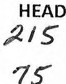 HEAD
215
75